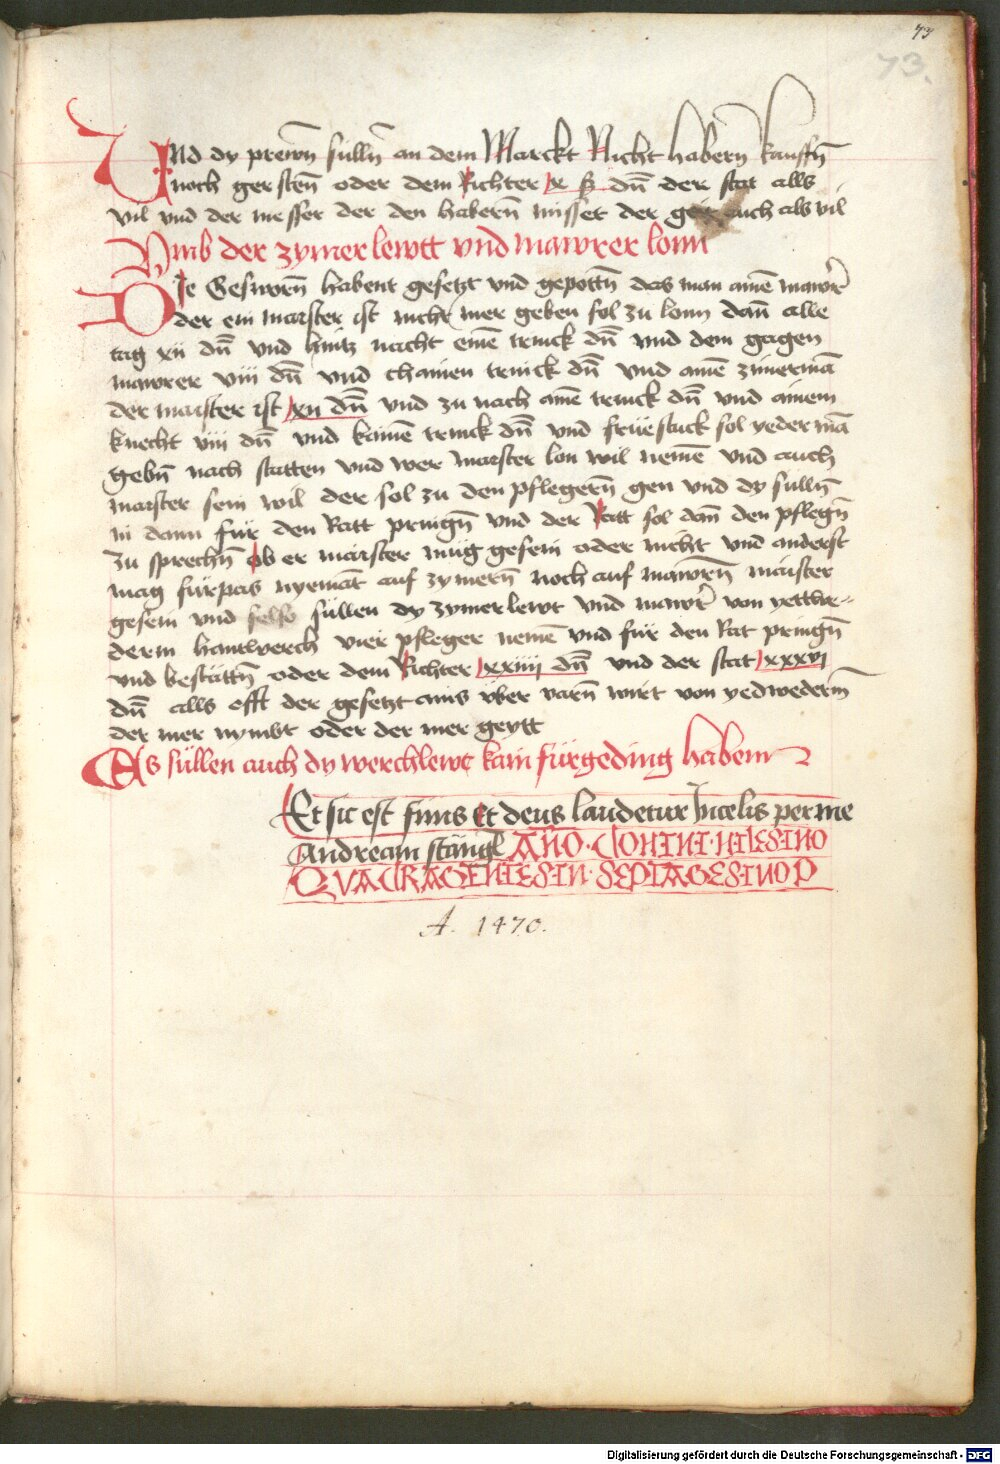 73
73.
Und dy prewn̄ sulln̄ an dem Marckt Nicht habern̄ kauffn̄
noch gersten̄ oder dem Richter x ß dn̄ der stat alls
vil vnd der messer der den habern̄ misset der geit auch als vil
Vmb der zymerlewtt vnd mawrer lonn
Die Gesworn̄ habent gesetzt vnd gepottn̄ das man ainē mawrer
der ein maister ist nicht mer geben sol zu lonn dan̄ alle
tag xii dn̄ vnd hintz nacht einē trinck dn̄ vnd dem gagen
mawrer viii dn̄ vnd chainen trinck dn̄ vnd ainē zimermā
der maister ist xii dn̄ vnd zu nach ainē trinck dn̄ vnd ainem
knecht viii dn̄ vnd kainē trinck dn̄ vnd früestuck sol yedermā
gebn̄ nach statten vnd wer maister lon wil nemē vnd auch
maister sein wil der sol zu den pflegern̄ gen vnd dy sulln̄
in dann für den Ratt pringn̄ vnd der Ratt sol dan̄ den pflegn̄
zu sprechn̄ ob er maister müg gesein oder nicht vnd anderst
mag fürpas nyemāt auf zymern̄ noch auf mawrn̄ maister
gesein vnd süllen dy zymerlewt vnd mawrer von yettwe-
derm hantwerch vier pfleger nemē vnd für den Rat pringn̄
vnd bestättn̄ oder dem Richter xxiiii dn̄ vnd der stat xxxvi
dn̄ alls offt der gesetzt ains vber varn̄ wirt von yedwederm̄
der mer nymbt oder der mer geytt
Es süllen auch dy werchlewt kain fürgeding habenn
Et sic est finis Et deus laudetur Incelis per me
Andream stängl Año. DOMINI. MILESIMO
QVADRAGENTESIM. SEPTAGESIMO P
A. 1470.
Digitalisierung gefördert durch die Deutsche Forschungsgemeinschaft - DFG